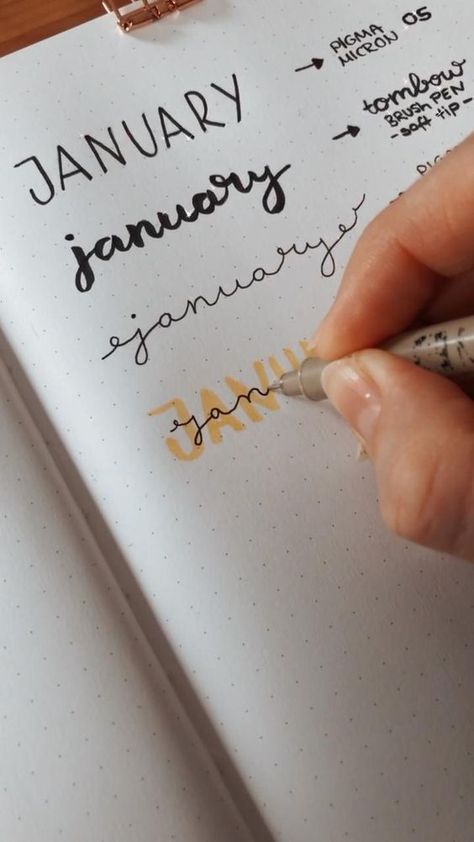 JANUARY
→ PIGMA
MICRON 05
january
→ tombow
BRUSH PEN
- soft tip -
january
JANU
jan